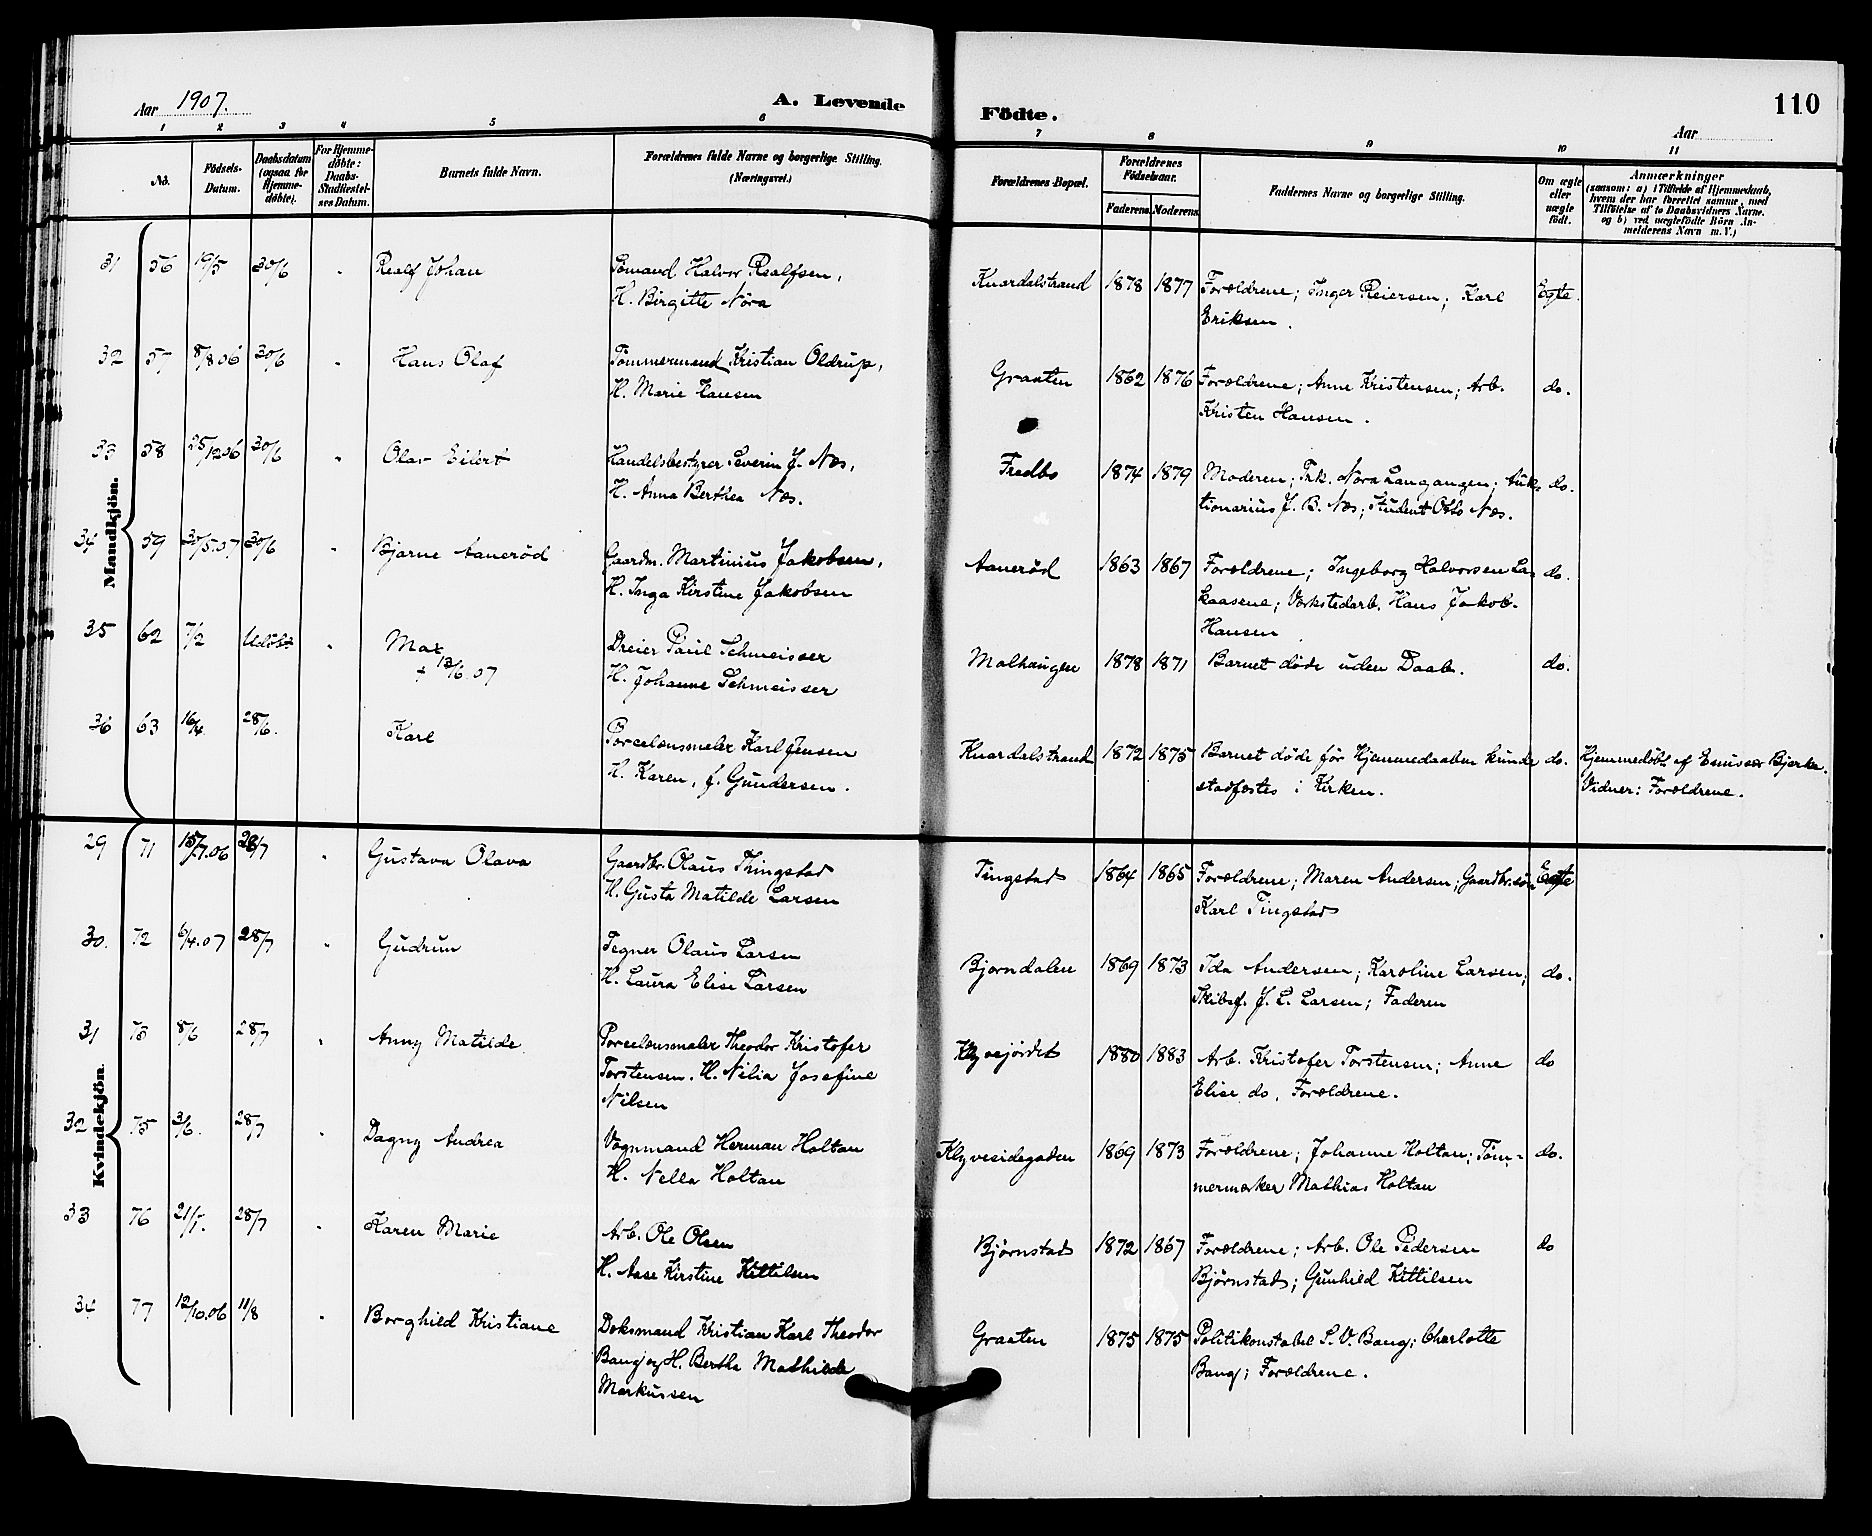 Aar 1907.
A. Levende
1 2 3 4 5 6
No.
Födsels-
Datum.
Daabsdatum
(ogsaa for
Hjemme-
döbte).
For Hjemme-
döbte:
Daabs-
Stadfæstel-
ses Datum.
Barnets fulde Navn.
Forældrenes fulde Navne og borgerlige Stilling.
(Næringsvei.)
Mandkjön.
31 56 19/5 30/6 " Realf Johan
Sömand Halvor Realfsen,
H. Birgitte Nöra
32 57 8/8 06 30/6 " Hans Olaf
Tömmermand Kristian Oldrup,
H. Marie Hansen
33 58 25/12 06 30/6 " Olav Eilert
Handelsbestyrer Severin J. Næs,
H. Anna Berthea Næs.
34 59 30/5.07 30/6 " Bjarne Aanerød
Gaardm. Martinius Jakobsen,
H. Inga Kirstine Jakobsen
35 62 7/2 Udöbt " Max
+ 13/6.07
Dreier Paul Schmeisser
H. Johanne Schmeisser
36 63 16/4 28/6. Karl
Porcelænsmaler Karl Jensen
H. Karen, f. Gundersen.
Kvindekjön.
29 71 15/7.06 28/7 " Gustava Olava
Gaardbr. Olaus Thingstad
H. Gusta Matilde Larsen
30. 72 6/4.07 28/7 " Gudrun
Tegner Olaus Larsen
H. Laura Elise Larsen
31 73 8/6 28/7 " Anny Matilde
Porcelænsmaler Theodor Kristofer
Torstensen. H. Nilia Josefine
Nilsen
32 75 3/6. 28/7 " Dagny Andrea
Vognmand Herman Holtan
H. Nella Holtan
33 76 21/7. 28/7 " Karen Marie
Arb. Ole Olsen
H. Aase Kirstine Kittilsen
34 77 12/10.06 11/8 " Borghild Kristiane
Doksmand Kristian Karl Theodor
Bang og H. Berthe Mathilde
Markussen
Födte.
110
Aar
7 8 9 10 11
Forældrenes Bopæl.
Forældrenes
Födselsaar.
Faderens. Moderens.
Faddernes Navne og borgerlige Stilling.
Om ægte
eller
uægte
født.
Anmærkninger
(saasom: a) i Tilfælde af Hjemmedaab,
hvem der har forrettet samme, med
Tilföielse af to Daabsvidners Navne.
og b) ved uægtefödte Börn An-
melderens Navn m. V.)
Knardalstrand 1878 1877 Forældrene; Inger Reiersen; Karl Egte.
Eriksen.
Graaten 1862 1876 Forældrene; Anne Kristensen; Arb. do.
Kristen Hansen.
Fredbo 1874 1879 Moderen; Frk. Nora Langangen; Auk- do.
tionarius J. B. Næs; Student Otto Næs.
Aanerød 1863 1867 Forældrene; Ingeborg Halvorsen La- do.
kaasene; Værkstedarb. Hans Jakob-
Hansen
Molhaugen 1878 1871 Barnet døde uden Daab. do.
Knardalstrand 1872 1875 Barnet døde før Hjemmedaaben kunde do. Hjemmedøbt af Bjerke.
stadfæstes i Kirken. Vidner: Forældrene.
Tingstad 1864 1865 Forældrene; Maren Andersen; Gaardbr.søn Egte
Karl Tingstad
Bjørndalen 1869 1873 Ida Andersen; Karoline Larsen; do.
Skibsf. J. L. Larsen; Faderen
Klyvejordet 1880 1883 Arb. Kristofer Torstensen; Anne do
Elise do, Forældrene.
Klyvesidegaden 1869 1873 Forældrene; Johanne Holtan; Töm- do.
mermærker Mathias Holtan
Bjørnstad 1872 1867 Forældrene; Arb. Ole Pedersen do
Bjørnstad; Gunhild Kittilsen
Graaten 1875 1875 Politikonstabel S. V. Bang; Charlotte
Bang; Forældrene.